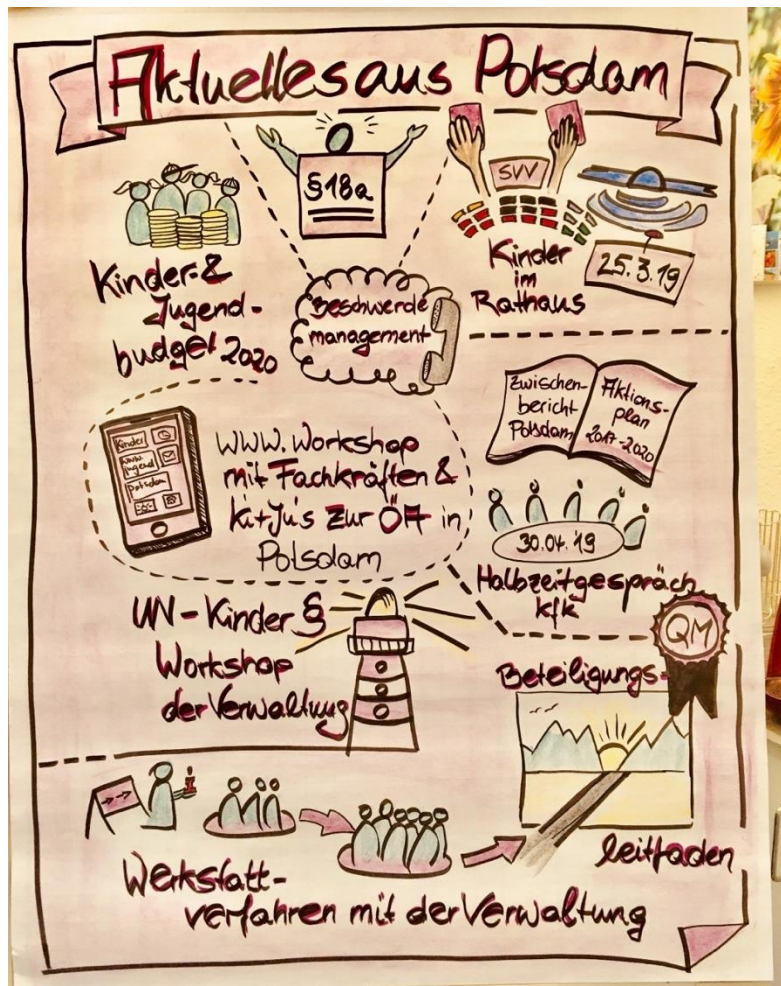 Aktuelles aus Potsdam
§18a
SVV
Kinder
im
Rathaus
25.3.19
Kinder-&
Jugend-
budget 2020
Beschwerde
management
Zwischen-
bericht
Potsdam
Aktions-
plan
2017-2020
Kinder
www.
jugend
potsdam
www.Workshop
mit Fachkräften &
Ki+Ju's zur ÖA in
Potsdam
30.04.19
Halbzeitgespräch
KfK
UN-Kinder §
Workshop
der Verwaltung
QM
Beteiligungs-
leitfaden
Werkstatt-
verfahren mit der Verwaltung